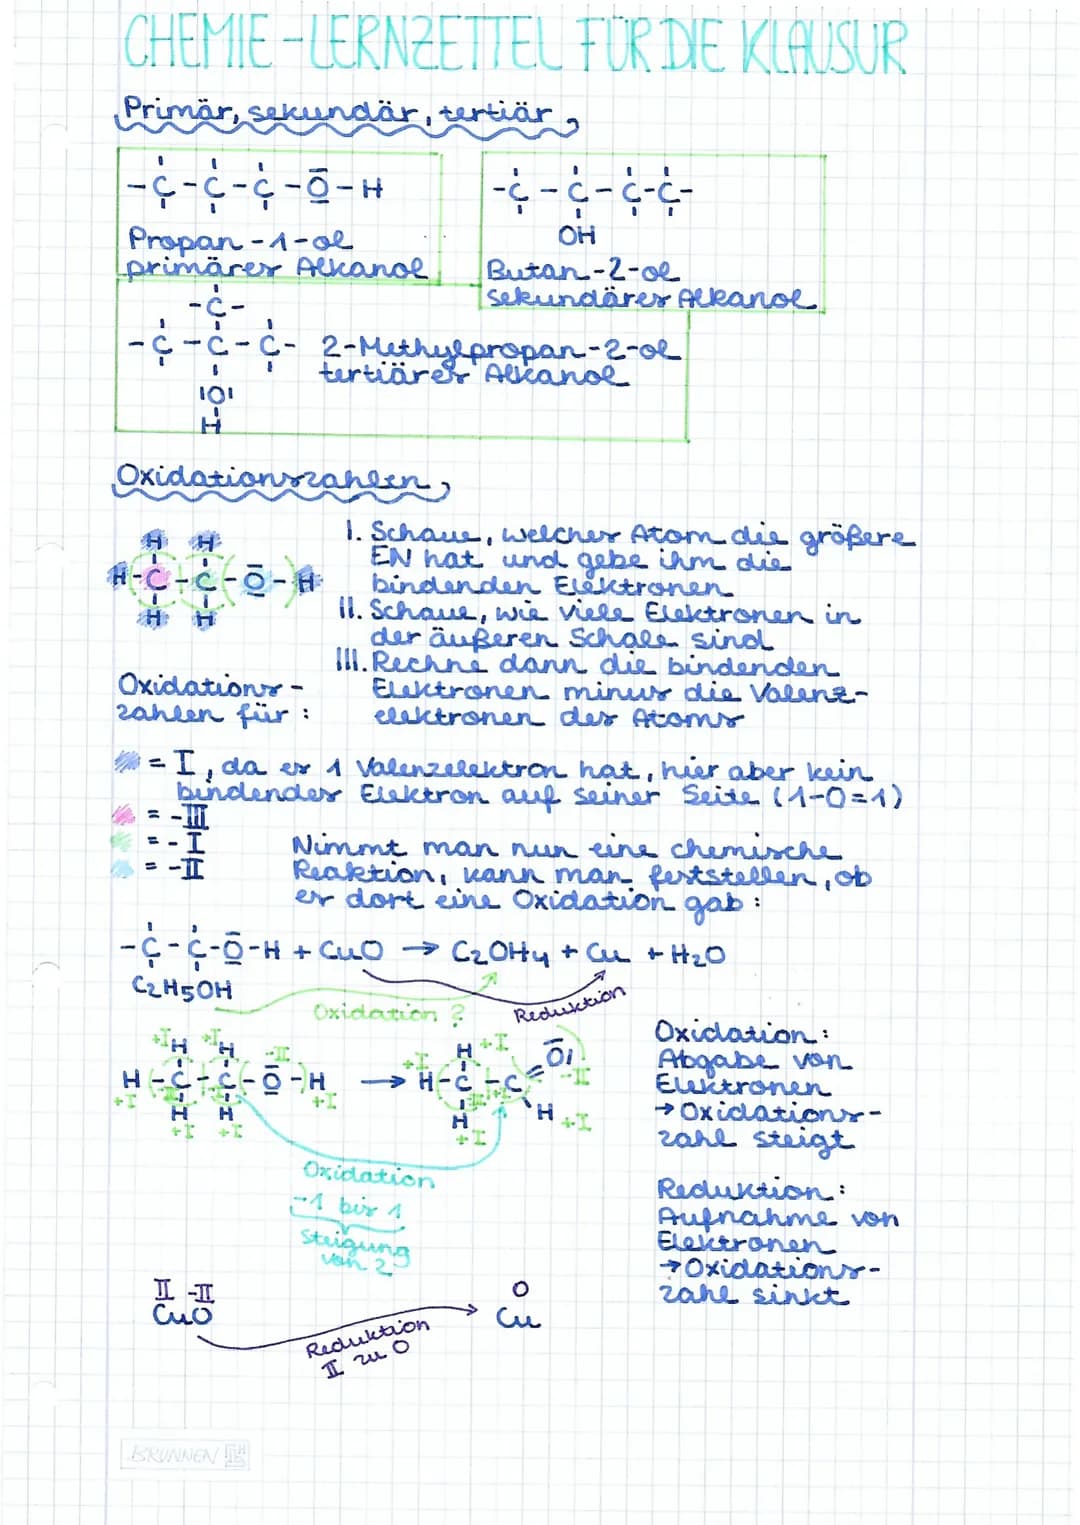 CHEMIE-LERNZETTEL FÜR DIE KLAUSUR
Primär, sekundär, tertiär
-C-C-C-O-H
Propan-1-ol
primärer Alkanol
-C-C-C-C-
OH
Butan-2-ol
sekundärer Alkanol
-C-
-C-C-C-
|O|
H
2-Methylpropan-2-ol
tertiärer Alkanol
Oxidationszahlen
H H
H-C-C-O-H
H H
I. Schaue, welches Atom die größere
EN hat und gebe ihm die
bindenden Elektronen
II. Schaue, wie viele Elektronen in
der äußeren Schale sind
III. Rechne dann die bindenden
Elektronen minus die Valenz-
elektronen des Atoms
Oxidations-
zahlen für:
= I, da es 1 Valenzelektron hat, hier aber kein
bindendes Elektron auf seiner Seite (1-0=1)
= -III
= -I
= -II
Nimmt man nun eine chemische
Reaktion, kann man feststellen, ob
es dort eine Oxidation gab:
-C-C-O-H + CuO → C2OH4 + Cu + H2O
C2H5OH
Oxidation?
Reduktion
+I +I
H H -II
H-C-C-O-H
+I +I
H H
+I +I
→
H +I
+I O| -II
H-C-C
+I
H H +I
+I
Oxidation
-1 bis 1
Steigung
von 2
Oxidation:
Abgabe von
Elektronen
→Oxidations-
zahl steigt
Reduktion:
Aufnahme von
Elektronen
→Oxidations-
zahl sinkt
II -II
CuO
Reduktion
II zu 0
0
Cu
BRUNNEN